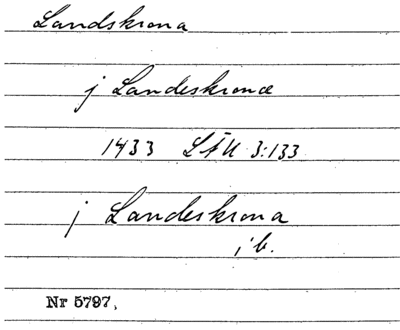 Landskrona
j Landeskronæ
1433 LÄU 3:133
j Landeskrona
ib.
Nr 5797,